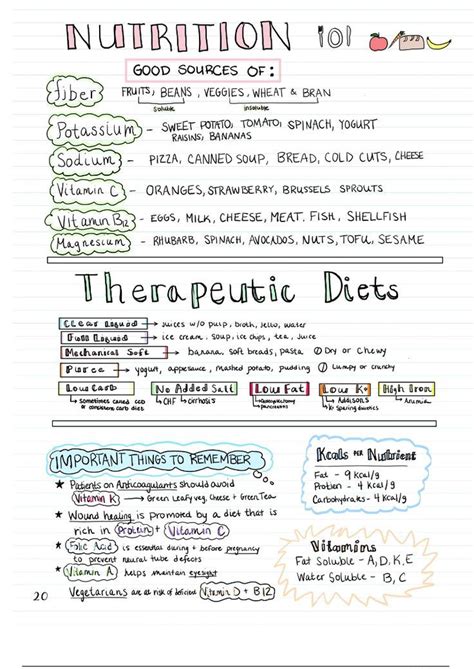 NUTRITION 101
GOOD SOURCES OF:
fiber FRUITS, BEANS, VEGGIES, WHEAT & BRAN
soluble insoluble
Potassium - SWEET POTATO, TOMATO, SPINACH, YOGURT
RAISINS, BANANAS
Sodium - PIZZA, CANNED SOUP, BREAD, COLD CUTS, CHEESE
Vitamin C - ORANGES, STRAWBERRY, BRUSSELS SPROUTS
Vitamin B12 - EGGS, MILK, CHEESE, MEAT, FISH, SHELLFISH
Magnesium - RHUBARB, SPINACH, AVOCADOS, NUTS, TOFU, SESAME
Therapeutic Diets
Clear Liquid → juices w/o pulp, broth, Jello, water
Full Liquid → ice cream, soup, ice chips, tea, juice
Mechanical Soft → banana, soft breads, pasta Dry or Chewy
Puree → yogurt, applesauce, mashed potato, pudding Lumpy or crunchy
Low Carb No Added Salt Low Fat Low K+ High Iron
↳ sometimes called CCD or consistent carb diets
↳ CHF ↳ cirrhosis
pancreatitis
↳ Addisons
K+ sparing diuretics
↳ Anemia
IMPORTANT THINGS TO REMEMBER
★ Patients on Anticoagulants should avoid
Vitamin K → Green leafy veg, cheese + Green Tea
★ Wound healing is promoted by a diet that is
rich in Protein + Vitamin C
★ Folic Acid is essential during + before pregnancy
to prevent neural tube defects
★ Vitamin A helps maintain eyesight
Vegetarians are at risk of deficient Vitamin D + B12
Kcals PER Nutrient
Fat - 9 Kcal/g
Protien - 4 Kcal/g
Carbohydrates - 4 Kcal/g
Vitamins
Fat Soluble - A, D, K, E
Water Soluble - B, C
20